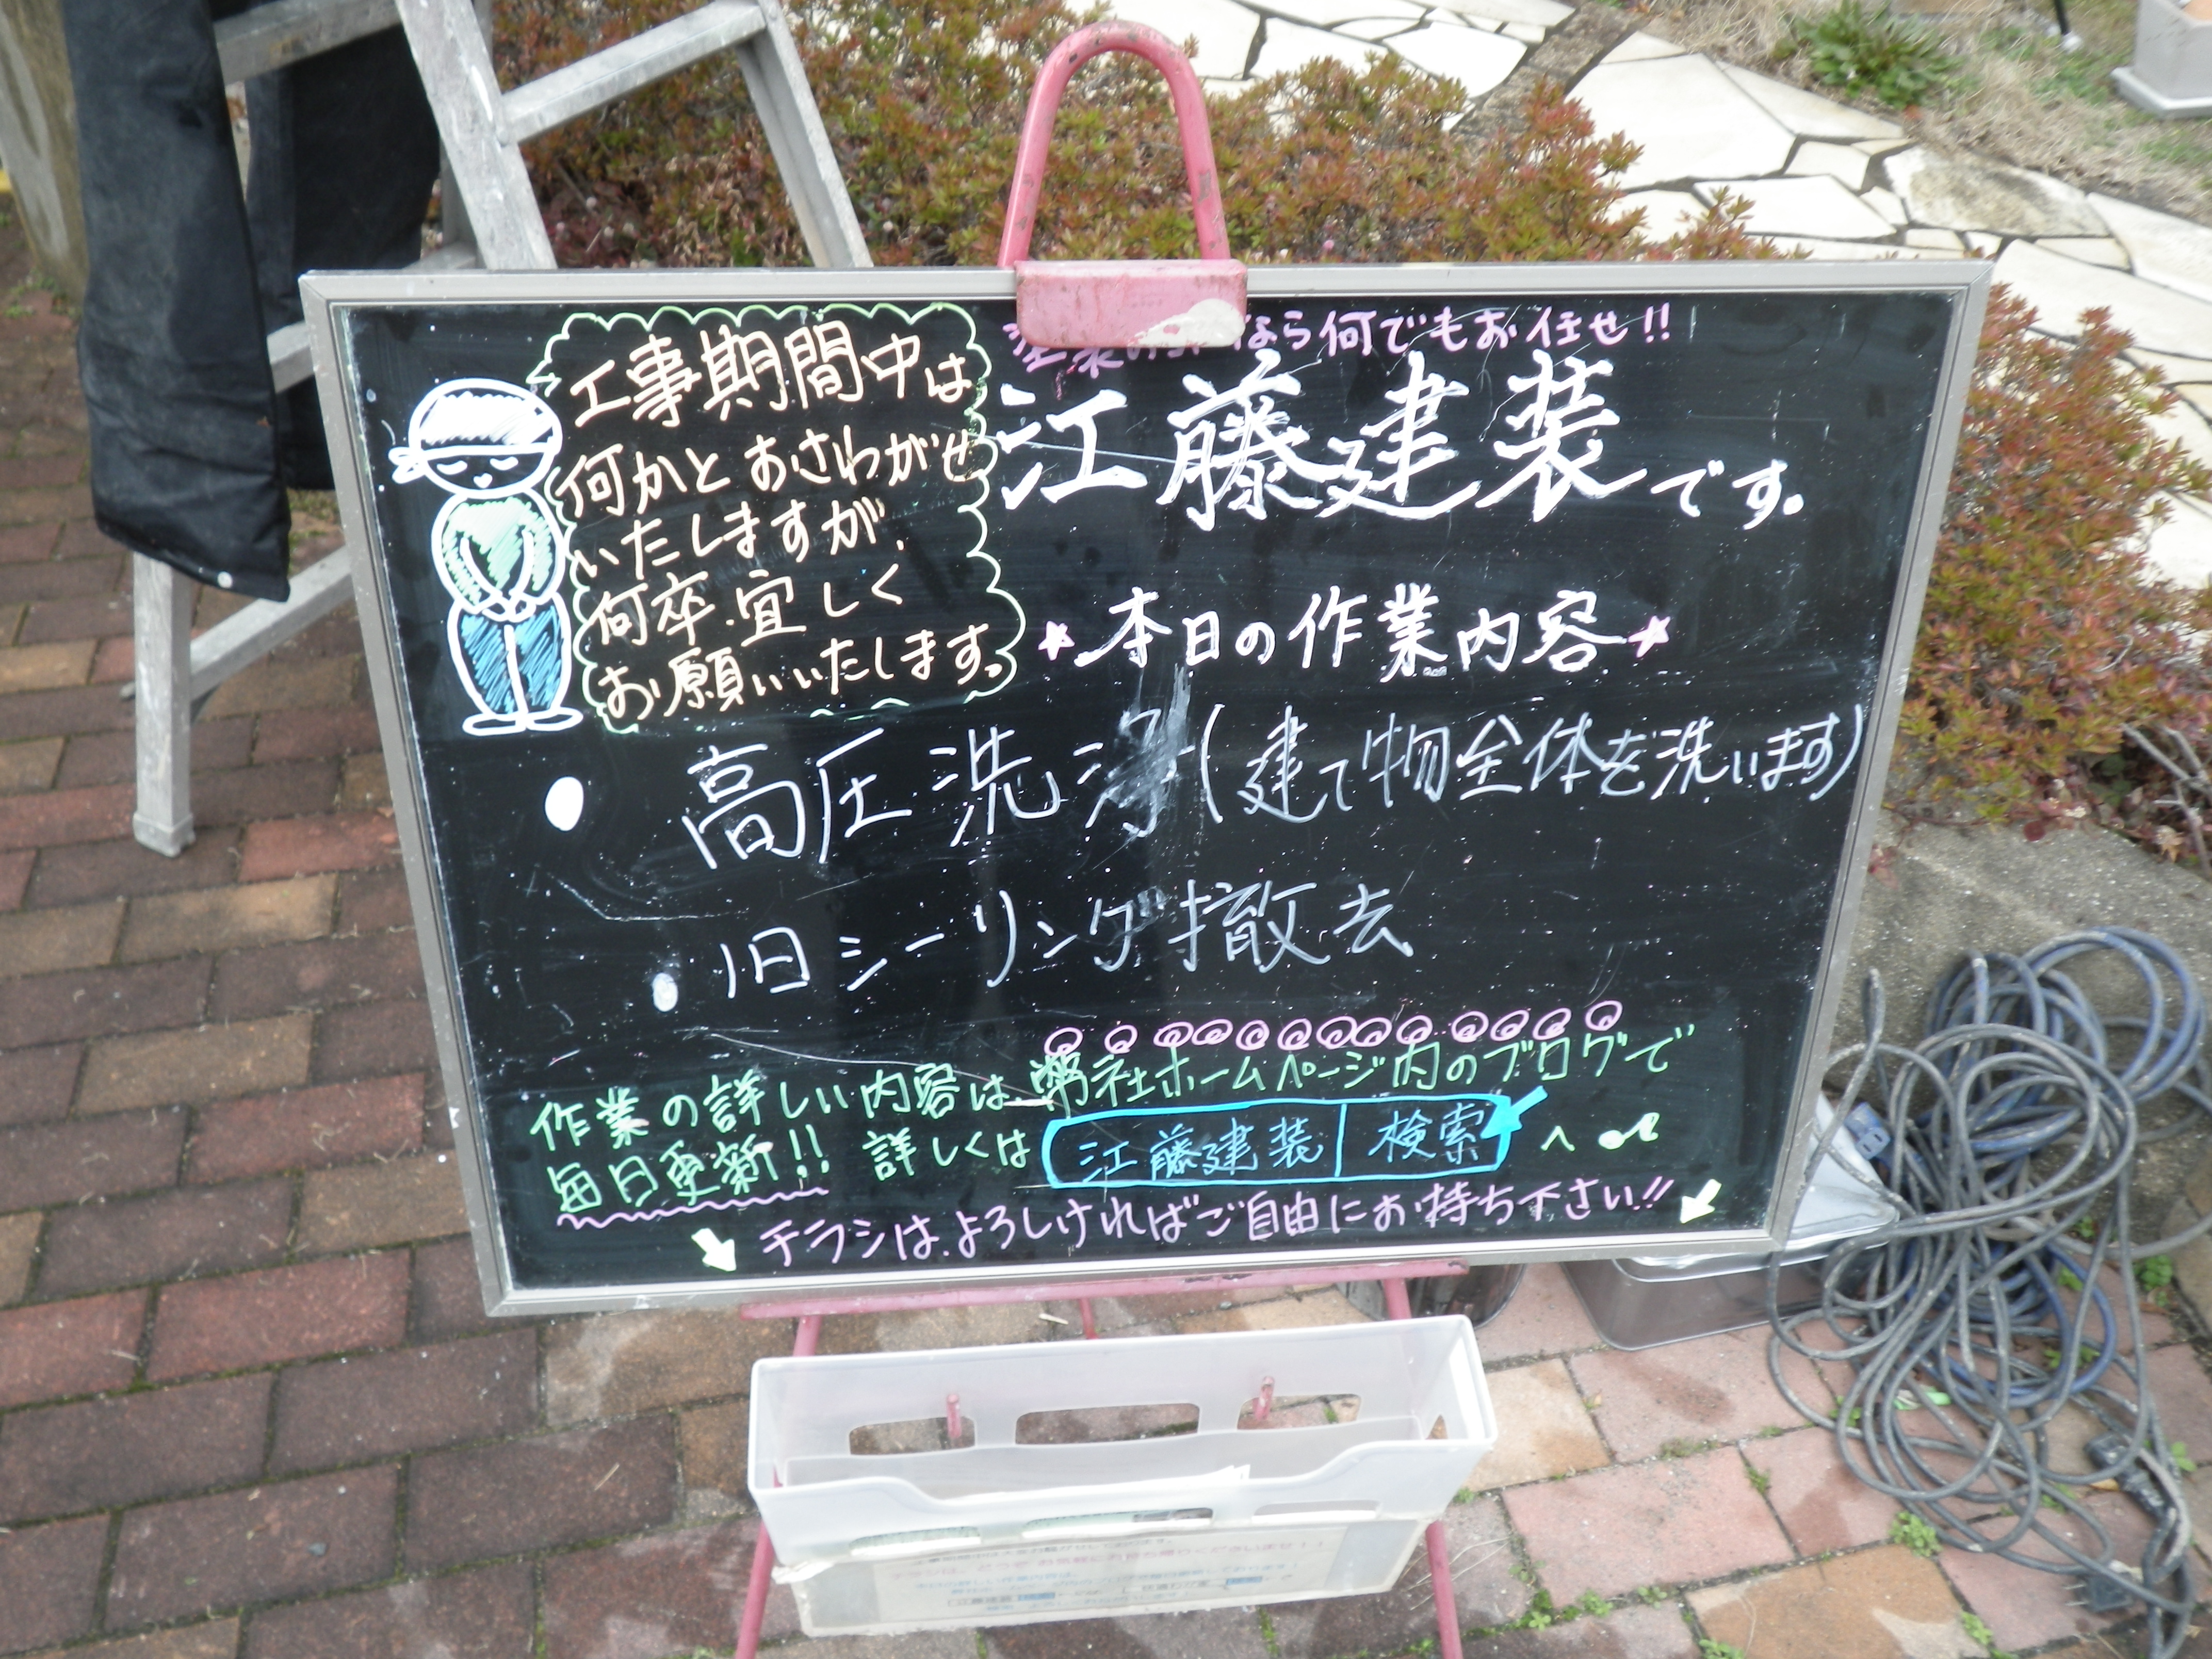 工事期間中は
何かとおさわがせ
いたしますが、
何卒、宜しく
お願いいたします。
なら何でもお任せ!!
江藤建装です。
★本日の作業内容★
● 高圧洗浄(建て物全体を洗います)
● 旧シーリング撤去
作業の詳しい内容は、弊社ホームページ内のブログで
毎日更新!! 詳しくは 江藤建装 検索 へ♪
チラシは、よろしければご自由にお持ち下さい!!